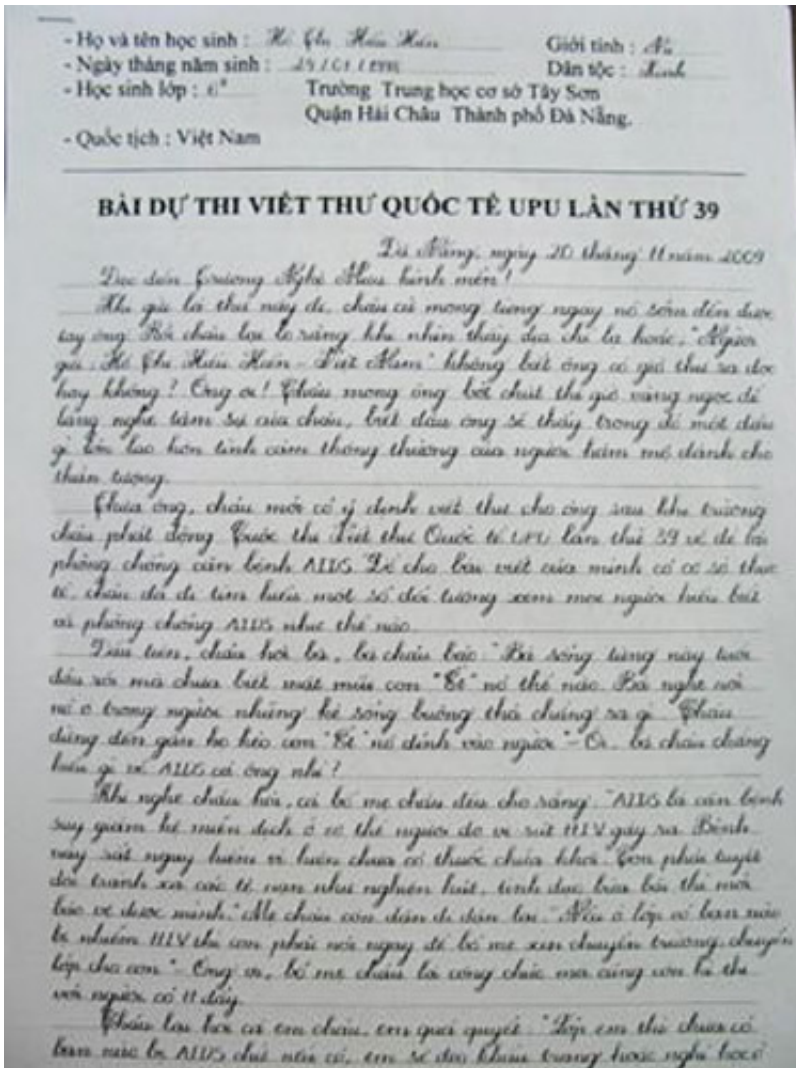 - Họ và tên học sinh : Hồ Thị Hiếu Hiền Giới tính : Nữ
- Ngày tháng năm sinh : Dân tộc : Kinh
- Học sinh lớp : Trường Trung học cơ sở Tây Sơn
Quận Hải Châu Thành phố Đà Nẵng.
- Quốc tịch : Việt Nam
BÀI DỰ THI VIẾT THƯ QUỐC TẾ UPU LẦN THỨ 39
Đà Nẵng, ngày 20 tháng 11 năm 2009
Đạo diễn Trương Nghệ Mưu kính mến!
Khi gửi lá thư này đi, cháu cứ mong từng ngày nó sớm đến được
tay ông. Rồi cháu lại lo rằng khi nhìn thấy địa chỉ lạ hoắc, "Người
gửi: Hồ Thị Hiếu Hiền - Việt Nam" không biết ông có giở thư ra đọc
hay không? Ông ơi! Cháu mong ông bớt chút thì giờ vàng ngọc để
lắng nghe tâm sự của cháu, biết đâu ông sẽ thấy trong đó một điều
gì lớn lao hơn tình cảm thông thường của người hâm mộ dành cho
thần tượng.
Thưa ông, cháu mới có ý định viết thư cho ông sau khi trường
cháu phát động Cuộc thi Viết thư Quốc tế UPU lần thứ 39 về đề tài
phòng chống căn bệnh AIDS. Để cho bài viết của mình có cơ sở thực
tế, cháu đã đi tìm hiểu một số đối tượng xem mọi người hiểu biết
và phòng chống AIDS như thế nào.
Đầu tiên, cháu hỏi bà, bà cháu bảo: "Bà sống từng này tuổi
đầu rồi mà chưa biết mặt mũi con "Ết" nó thế nào. Bà nghe nói
nó ở trong người những kẻ sống buông thả chúng ra gì. Cháu
đừng đến gần họ kẻo con "Ết" nó dính vào người" - Ôi, bà cháu chẳng
hiểu gì về AIDS cả ông nhỉ?
Khi nghe cháu hỏi, cả bố mẹ cháu đều cho rằng: "AIDS là căn bệnh
suy giảm hệ miễn dịch ở cơ thể người do vi rút HIV gây ra. Bệnh
này rất nguy hiểm vì hiện chưa có thuốc chữa khỏi. Con phải tuyệt
đối tránh xa các tệ nạn như nghiện hút, tình dục bừa bãi thì mới
bảo vệ được mình." Mẹ cháu còn dặn đi dặn lại: "Nếu ở lớp có bạn nào
bị nhiễm HIV thì con phải nói ngay để bố mẹ xin chuyển trường, chuyển
lớp cho con" - Ông ơi, bố mẹ cháu là công chức mà cũng còn kì thị
với người có H đấy.
Cháu lại hỏi cả em cháu, em quả quyết: "Lớp em thì chưa có
bạn nào bị AIDS chứ nếu có, em sẽ đeo khẩu trang hoặc nghỉ học